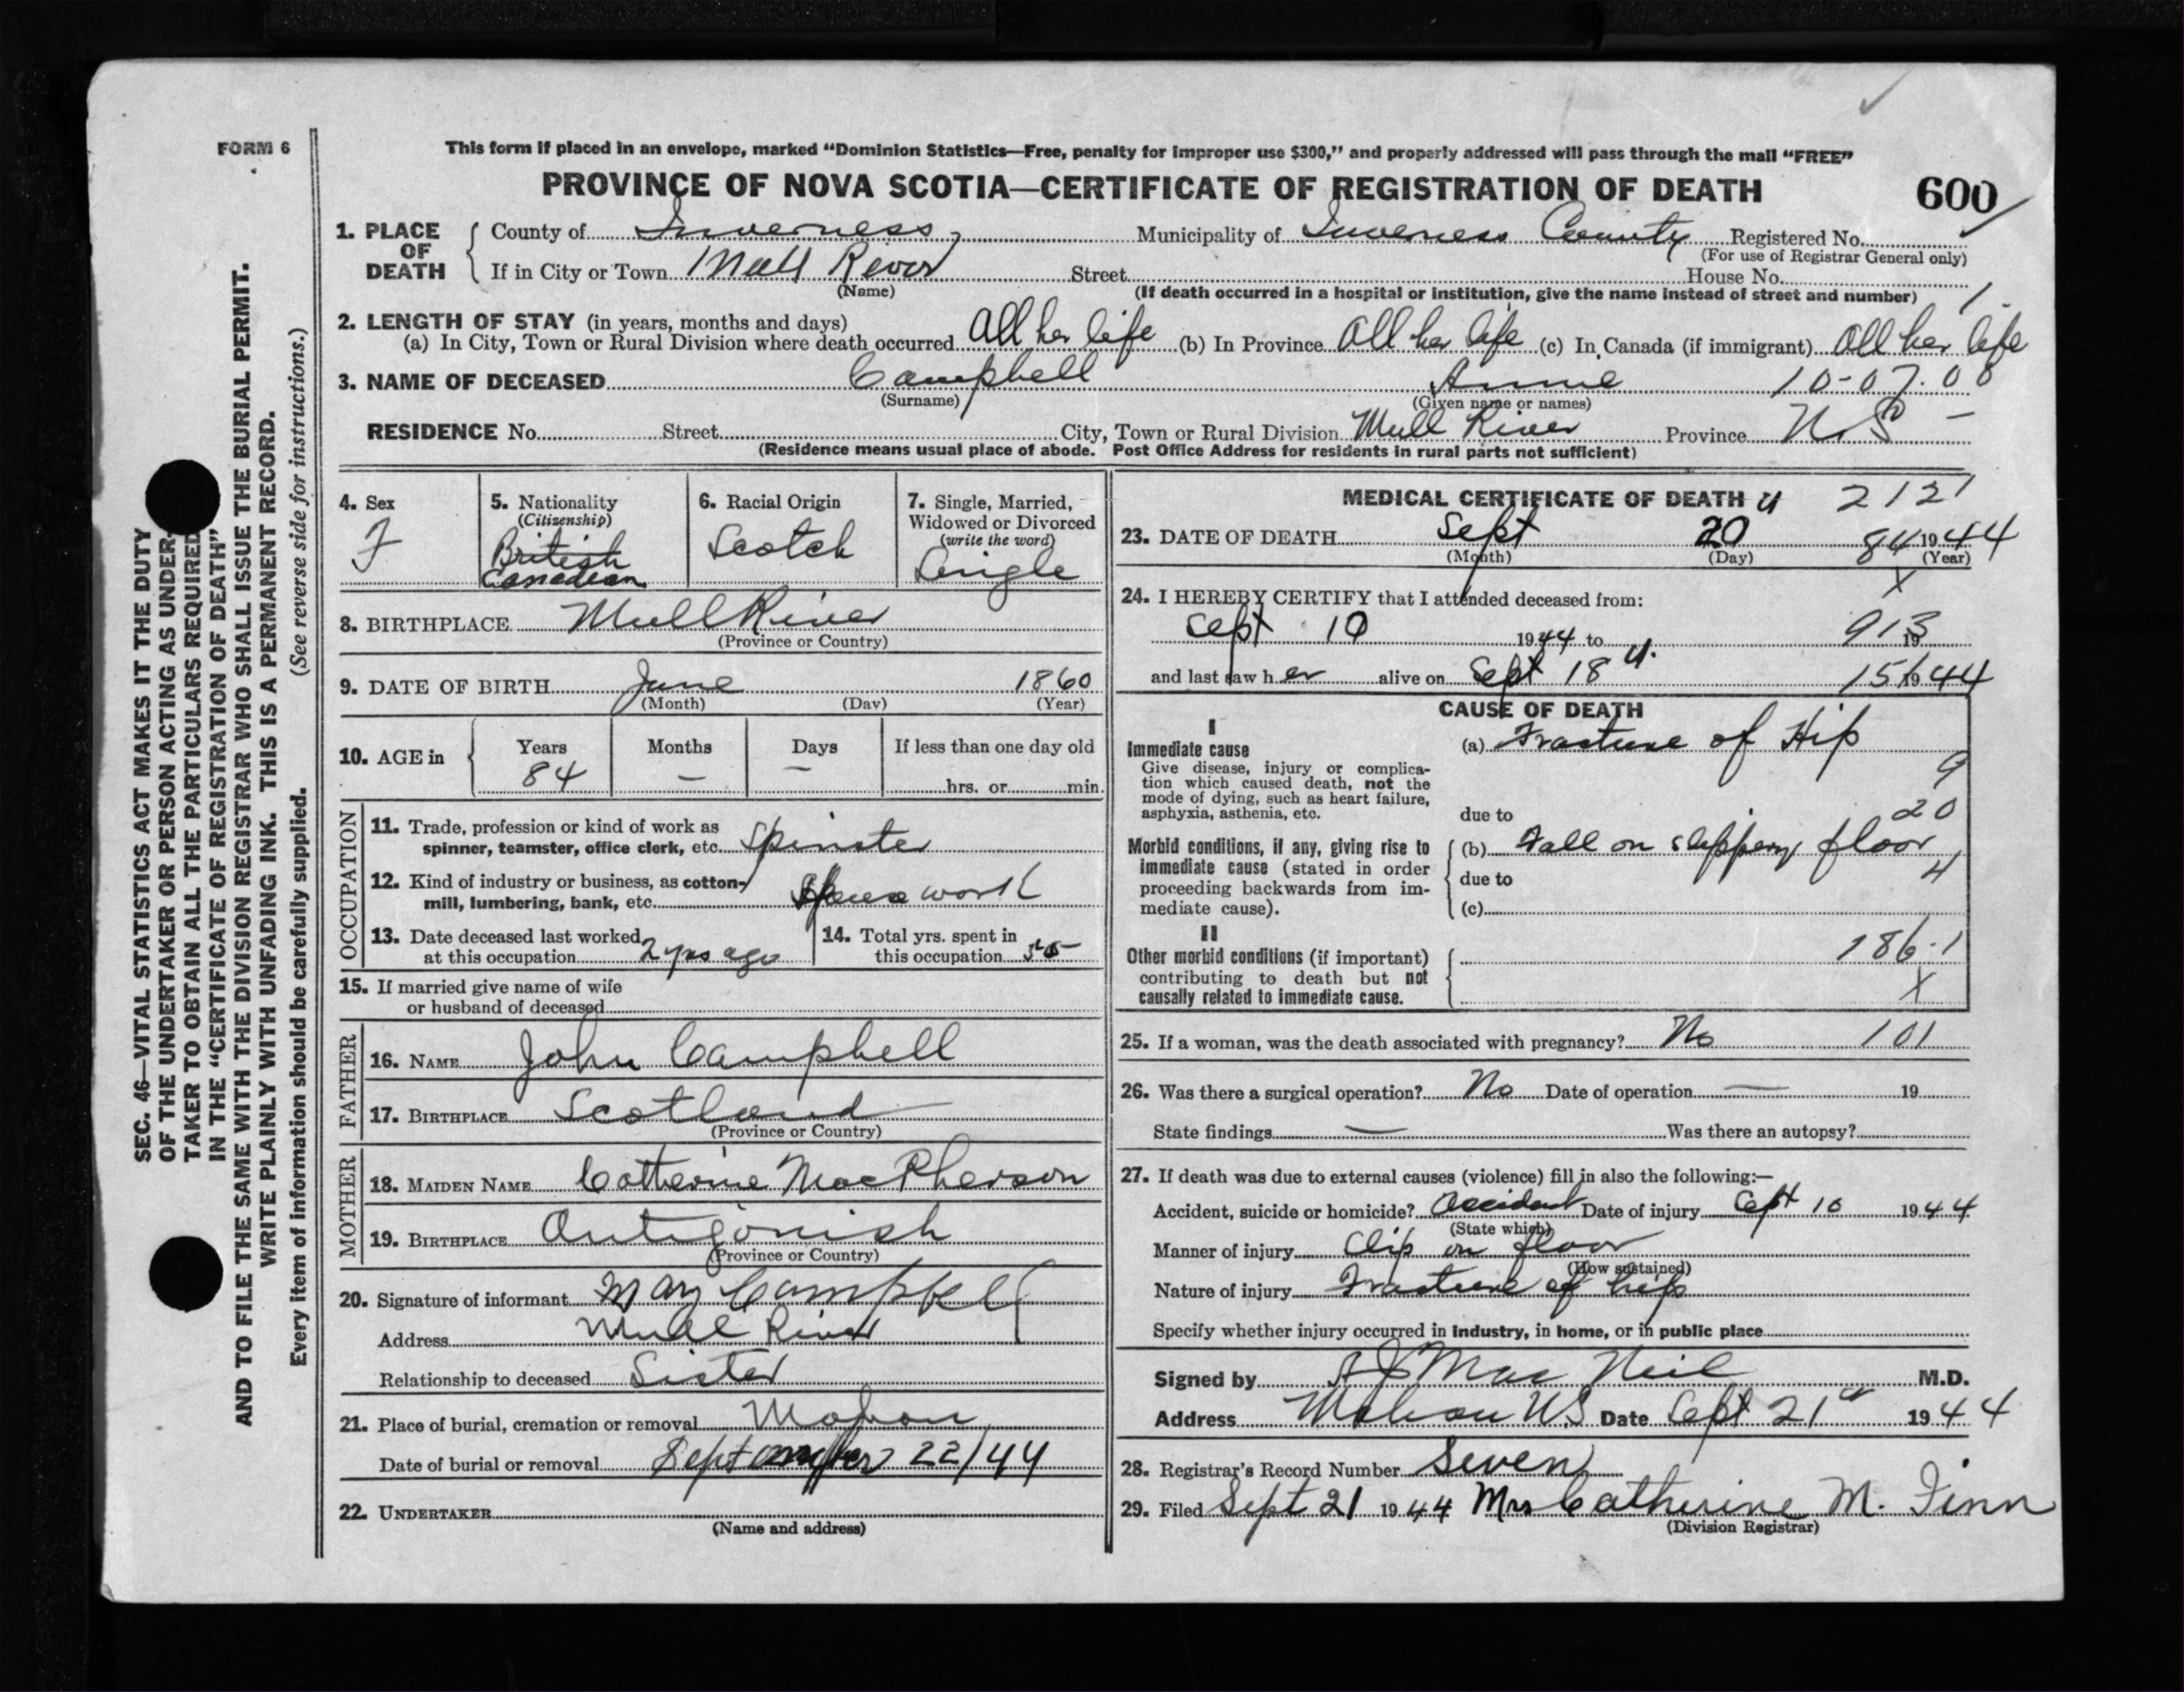 FORM 6
This form if placed in an envelope, marked “Dominion Statistics—Free, penalty for improper use $300,” and properly addressed will pass through the mail “FREE”
PROVINCE OF NOVA SCOTIA—CERTIFICATE OF REGISTRATION OF DEATH 600
SEC. 46—VITAL STATISTICS ACT MAKES IT THE DUTY
OF THE UNDERTAKER OR PERSON ACTING AS UNDER-
TAKER TO OBTAIN ALL THE PARTICULARS REQUIRED
IN THE “CERTIFICATE OF REGISTRATION OF DEATH”
AND TO FILE THE SAME WITH THE DIVISION REGISTRAR WHO SHALL ISSUE THE BURIAL PERMIT.
WRITE PLAINLY WITH UNFADING INK. THIS IS A PERMANENT RECORD.
Every item of information should be carefully supplied. (See reverse side for instructions.)
1. PLACE OF DEATH
County of Inverness Municipality of Inverness County Registered No.
(For use of Registrar General only)
If in City or Town Mull River Street House No.
(Name) (If death occurred in a hospital or institution, give the name instead of street and number) 1
2. LENGTH OF STAY (in years, months and days)
(a) In City, Town or Rural Division where death occurred All her life (b) In Province All her life (c) In Canada (if immigrant) All her life
3. NAME OF DECEASED Campbell Anne 10-07.08
(Surname) (Given name or names)
RESIDENCE No. Street City, Town or Rural Division Mull River Province N.S
(Residence means usual place of abode. Post Office Address for residents in rural parts not sufficient)
4. Sex
F
5. Nationality
(Citizenship)
British
Canadian
6. Racial Origin
Scotch
7. Single, Married,
Widowed or Divorced
(write the word)
Single
8. BIRTHPLACE Mull River
(Province or Country)
9. DATE OF BIRTH June 1860
(Month) (Day) (Year)
10. AGE in
Years Months Days If less than one day old
84 — — hrs. or min.
OCCUPATION
11. Trade, profession or kind of work as
spinner, teamster, office clerk, etc. Spinster
12. Kind of industry or business, as cotton-
mill, lumbering, bank, etc. work
13. Date deceased last worked
at this occupation 2 yrs ago
14. Total yrs. spent in
this occupation
15. If married give name of wife
or husband of deceased
FATHER
16. NAME John Campbell
17. BIRTHPLACE Scotland
(Province or Country)
MOTHER
18. MAIDEN NAME Catherine MacPherson
19. BIRTHPLACE Antigonish
(Province or Country)
20. Signature of informant Mary Campbell
Address Mull River
Relationship to deceased Sister
21. Place of burial, cremation or removal Mabou
Date of burial or removal September 22/44
22. UNDERTAKER
(Name and address)
MEDICAL CERTIFICATE OF DEATH 4 2121
23. DATE OF DEATH Sept 20 84 1944
(Month) (Day) (Year)
X
24. I HEREBY CERTIFY that I attended deceased from:
Sept 10 1944 to 19 913
and last saw her alive on Sept 18 4. 15 1944
CAUSE OF DEATH
I
Immediate cause
Give disease, injury or complica-
tion which caused death, not the
mode of dying, such as heart failure,
asphyxia, asthenia, etc.
(a) Fracture of Hip
9
20
due to
Morbid conditions, if any, giving rise to
immediate cause (stated in order
proceeding backwards from im-
mediate cause).
(b) Fall on slippery floor
4
due to
(c)
II
Other morbid conditions (if important)
contributing to death but not
causally related to immediate cause.
186.1
X
25. If a woman, was the death associated with pregnancy? No 101
26. Was there a surgical operation? No Date of operation — 19
State findings — Was there an autopsy?
27. If death was due to external causes (violence) fill in also the following:—
Accident, suicide or homicide? Accident Date of injury Sept 10 1944
(State which)
Manner of injury Slip on floor
(How sustained)
Nature of injury Fracture of hip
Specify whether injury occurred in industry, in home, or in public place
Signed by AJ MacNeil M.D.
Address Mabou NS Date Sept 21 1944
28. Registrar's Record Number Seven
29. Filed Sept 21 1944 Mrs Catherine M. Finn
(Division Registrar)